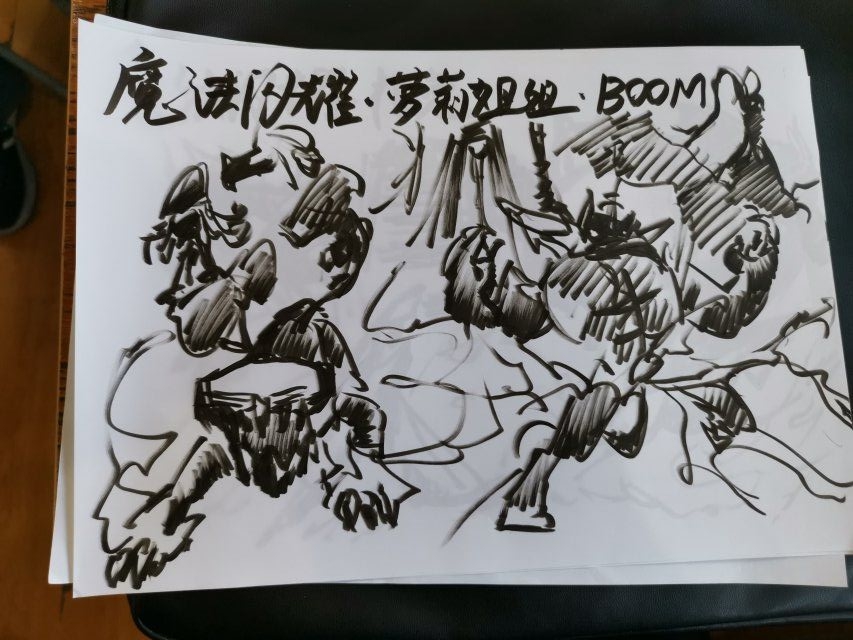 魔法闪耀·萝莉姐姐·BOOM